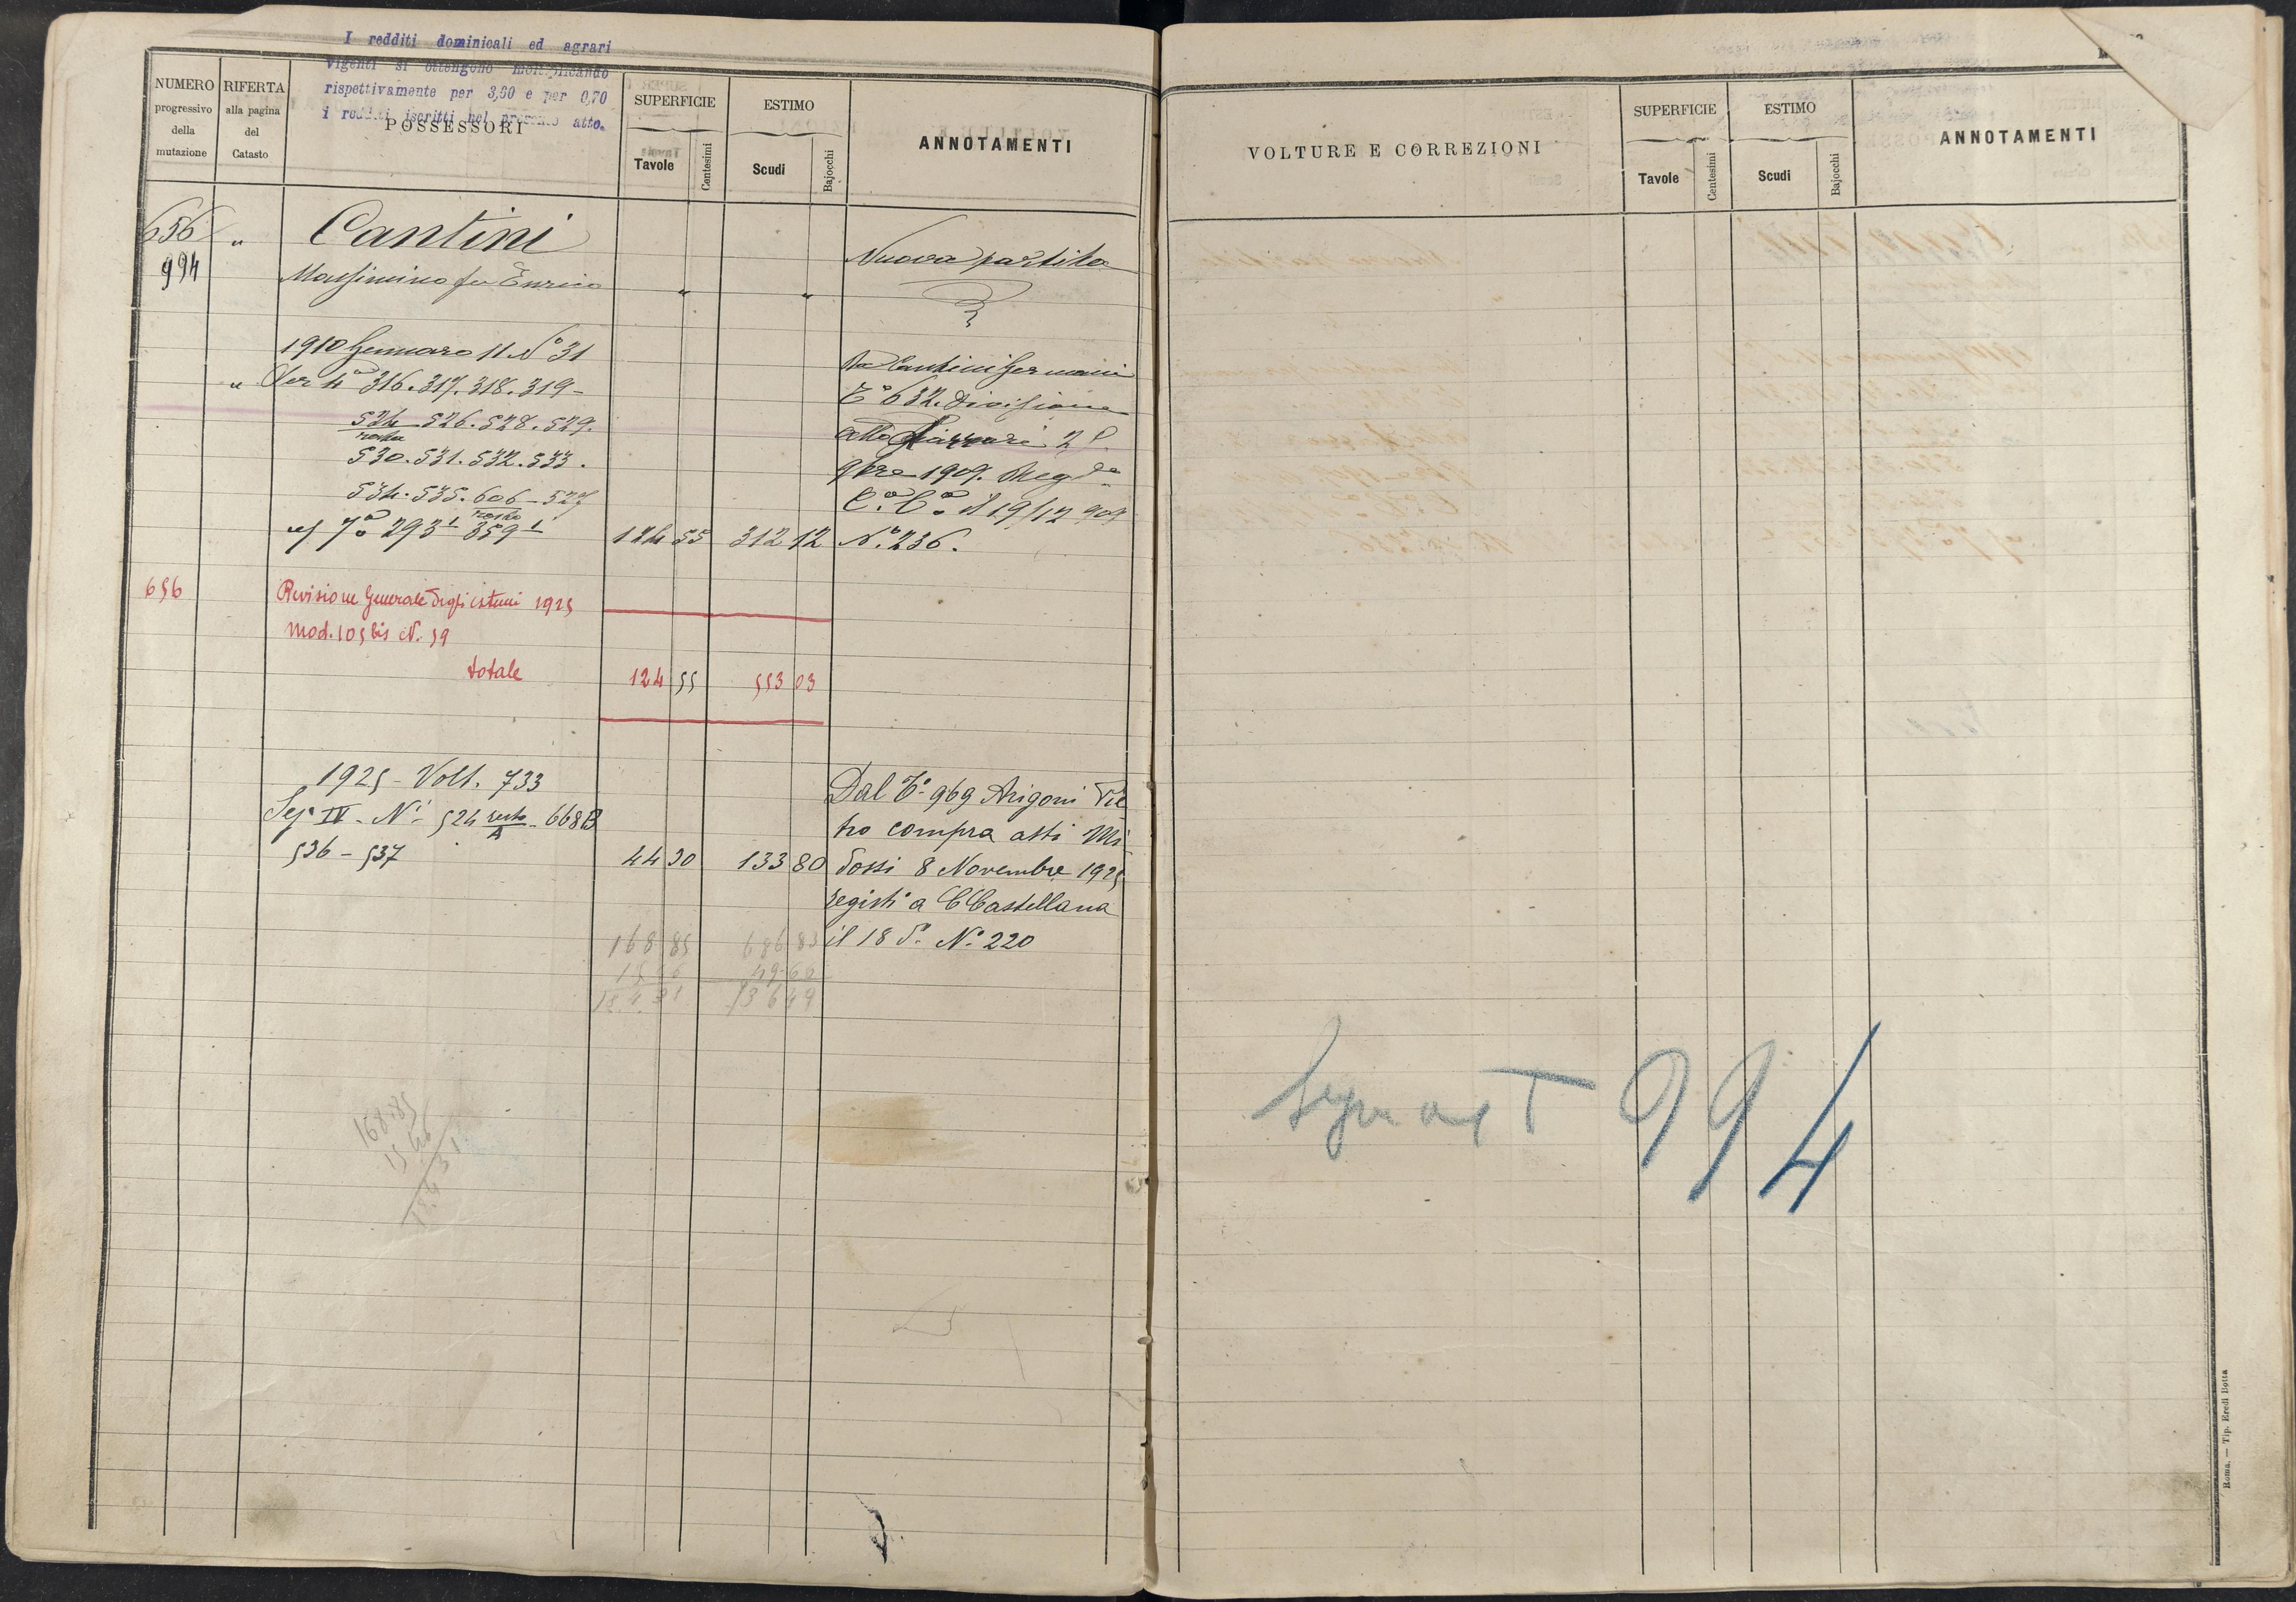 I redditi dominicali ed agrari
vigenti si ottengono moltiplicando
rispettivamente per 3,30 e per 0,70
i redditi iscritti nel presente atto.
NUMERO
progressivo
della
mutazione
RIFERTA
alla pagina
del
Catasto
POSSESSORI
SUPERFICIE
Tavole
Centesimi
ESTIMO
Scudi
Bajocchi
ANNOTAMENTI
656 „ Cantini
994
Massimino fu Enrico „ „
Nuova partita
1910 Gennaro 11 No 31
„ Sez 4a 316. 317. 318. 319 -
524 526. 528. 529.
resto
530. 531. 532. 533.
534. 535. 606 - 527
resto
7a 293 1 359 1 124 55 312 12
Da Cantini Germani
To 632. Divisione
atto 2 8
9bre 1909. Reg
C.a C.a il 19/12 909
No. 236.
656 Revisione Generale degli estimi 1925
Mod. 105 bis N. 59
totale 124 55 553 03
1925 - Volt. 733
Sez IV - Ni 524 resto/A - 668 B
536 - 537 44 30 133 80
Dal To 969 Arigoni Pie
tro compra atti Mi
dossi 8 Novembre 1925
registo a CCastellana
il 18 do No 220
168 85 686 83
15 46 49 60
184 31
168.85
15 46
184 31
VOLTURE E CORREZIONI
SUPERFICIE
Tavole
Centesimi
ESTIMO
Scudi
Bajocchi
ANNOTAMENTI
Segue al T 994
Roma. — Tip. Eredi Botta